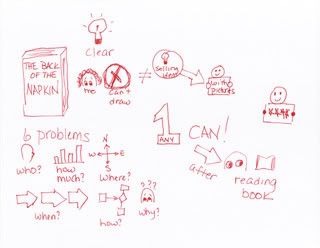 clear
THE BACK
OF THE
NAPKIN
me
can't
draw
selling
ideas
with
pictures
1
ANY
CAN!
after
reading
book
6 problems
who?
how
much?
N
W
E
S
where?
when?
how?
???
why?